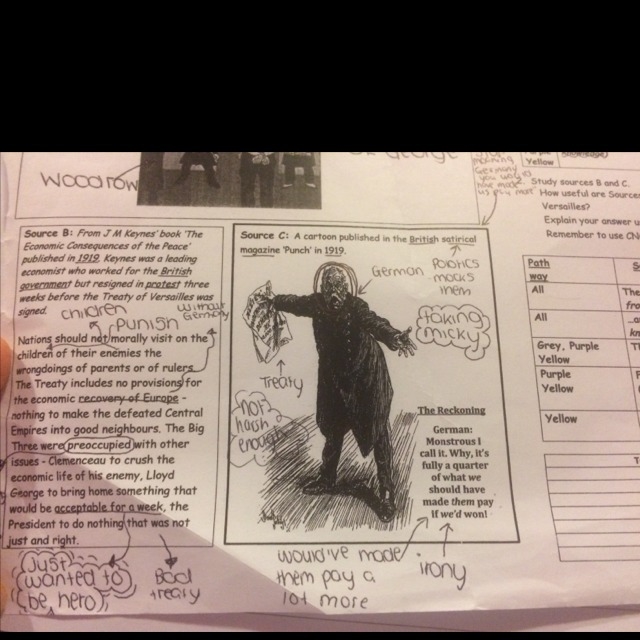 Woodrow
George
moaning
Germany
you would
have made
us pay more
Yellow
2. Study sources B and C.
How useful are Source
Versailles?
Explain your answer u
Remember to use CN
Source B: From J M Keynes' book 'The
Economic Consequences of the Peace'
published in 1919. Keynes was a leading
economist who worked for the British
government but resigned in protest three
weeks before the Treaty of Versailles was
signed.
children
punish
without
Germany
Nations should not morally visit on the
children of their enemies the
wrongdoings of parents or of rulers.
The Treaty includes no provisions for
the economic recovery of Europe -
nothing to make the defeated Central
Empires into good neighbours. The Big
Three were preoccupied with other
issues - Clemenceau to crush the
economic life of his enemy, Lloyd
George to bring home something that
would be acceptable for a week, the
President to do nothing that was not
just and right.
Just
wanted to
be hero
Bad
treaty
Source C: A cartoon published in the British satirical
magazine 'Punch' in 1919.
German
Politics
mocks
them
taking
micky
Treaty
not
harsh
enough
The Reckoning
German:
Monstrous I
call it. Why, it's
fully a quarter
of what we
should have
made them pay
if we'd won!
would've made
them pay a
lot more
irony
Path
way
All
The
All
Grey, Purple
Yellow
Purple
Yellow
Yellow